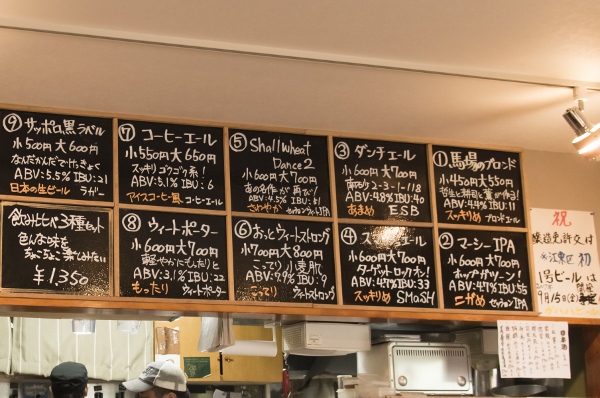 ⑨ サッポロ黒ラベル
小500円 大600円
なんだかんだでけっきょく
ABV:5.5% IBU:21
日本の生ビール ラガー
⑦ コーヒーエール
小550円 大650円
スッキリゴクゴク系!
ABV:5.1% IBU:6
アイスコーヒー風 コーヒーエール
⑤ Shall Wheat
Dance 2
小600円 大700円
あの名作が再び!
さわやか セッションウィートIPA
③ ダンチエール
小600円 大700円
2-3-1-118
ABV:4.8% IBU:40
あまめ ESB
① 馬場のブロンド
小450円 大550円
ABV:4.9% IBU:11
スッキリめ ブロンドエール
飲みくらべ3種セット
色んな味を
ちょこちょこ楽しみたい
¥1,350
⑧ ウィートポーター
小600円 大700円
軽やかにもったりと
ABV:3.1% IBU:22
もったり ウィートポーター
⑥ おっとウィートストロング
小700円 大800円
こってり小麦肌
ABV:7.9% IBU:9
こってり ウィートストロング
④ エール
小600円 大700円
ターゲットロックオン!
ABV:4.7% IBU:33
スッキリめ SMaSH
② マーシーIPA
小600円 大700円
ホップガツーン!
ABV:4.7% IBU:55
にがめ セッションIPA
祝
醸造免許交付
江東区初
1号ビールは
9月15日(金)
日本酒